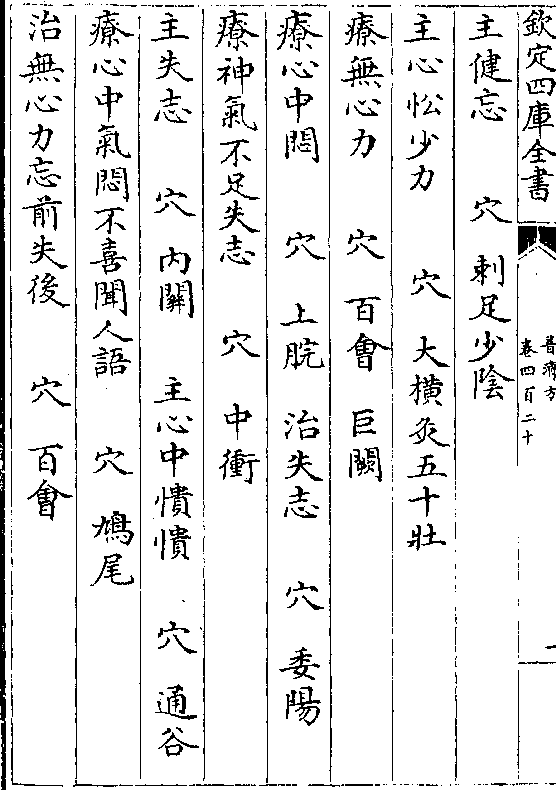 欽定四庫全書
普濟方
卷四百二十
一
主健忘 穴 刺足少陰
主心忪少力 穴 大橫灸五十壯
療無心力 穴 百會 巨闕
療心中悶 穴 上脘 治失志 穴 委陽
療神氣不足失志 穴 中衝
主失志 穴 內關 主心中憒憒 穴 通谷
療心中氣悶不喜聞人語 穴 鳩尾
治無心力忘前失後 穴 百會